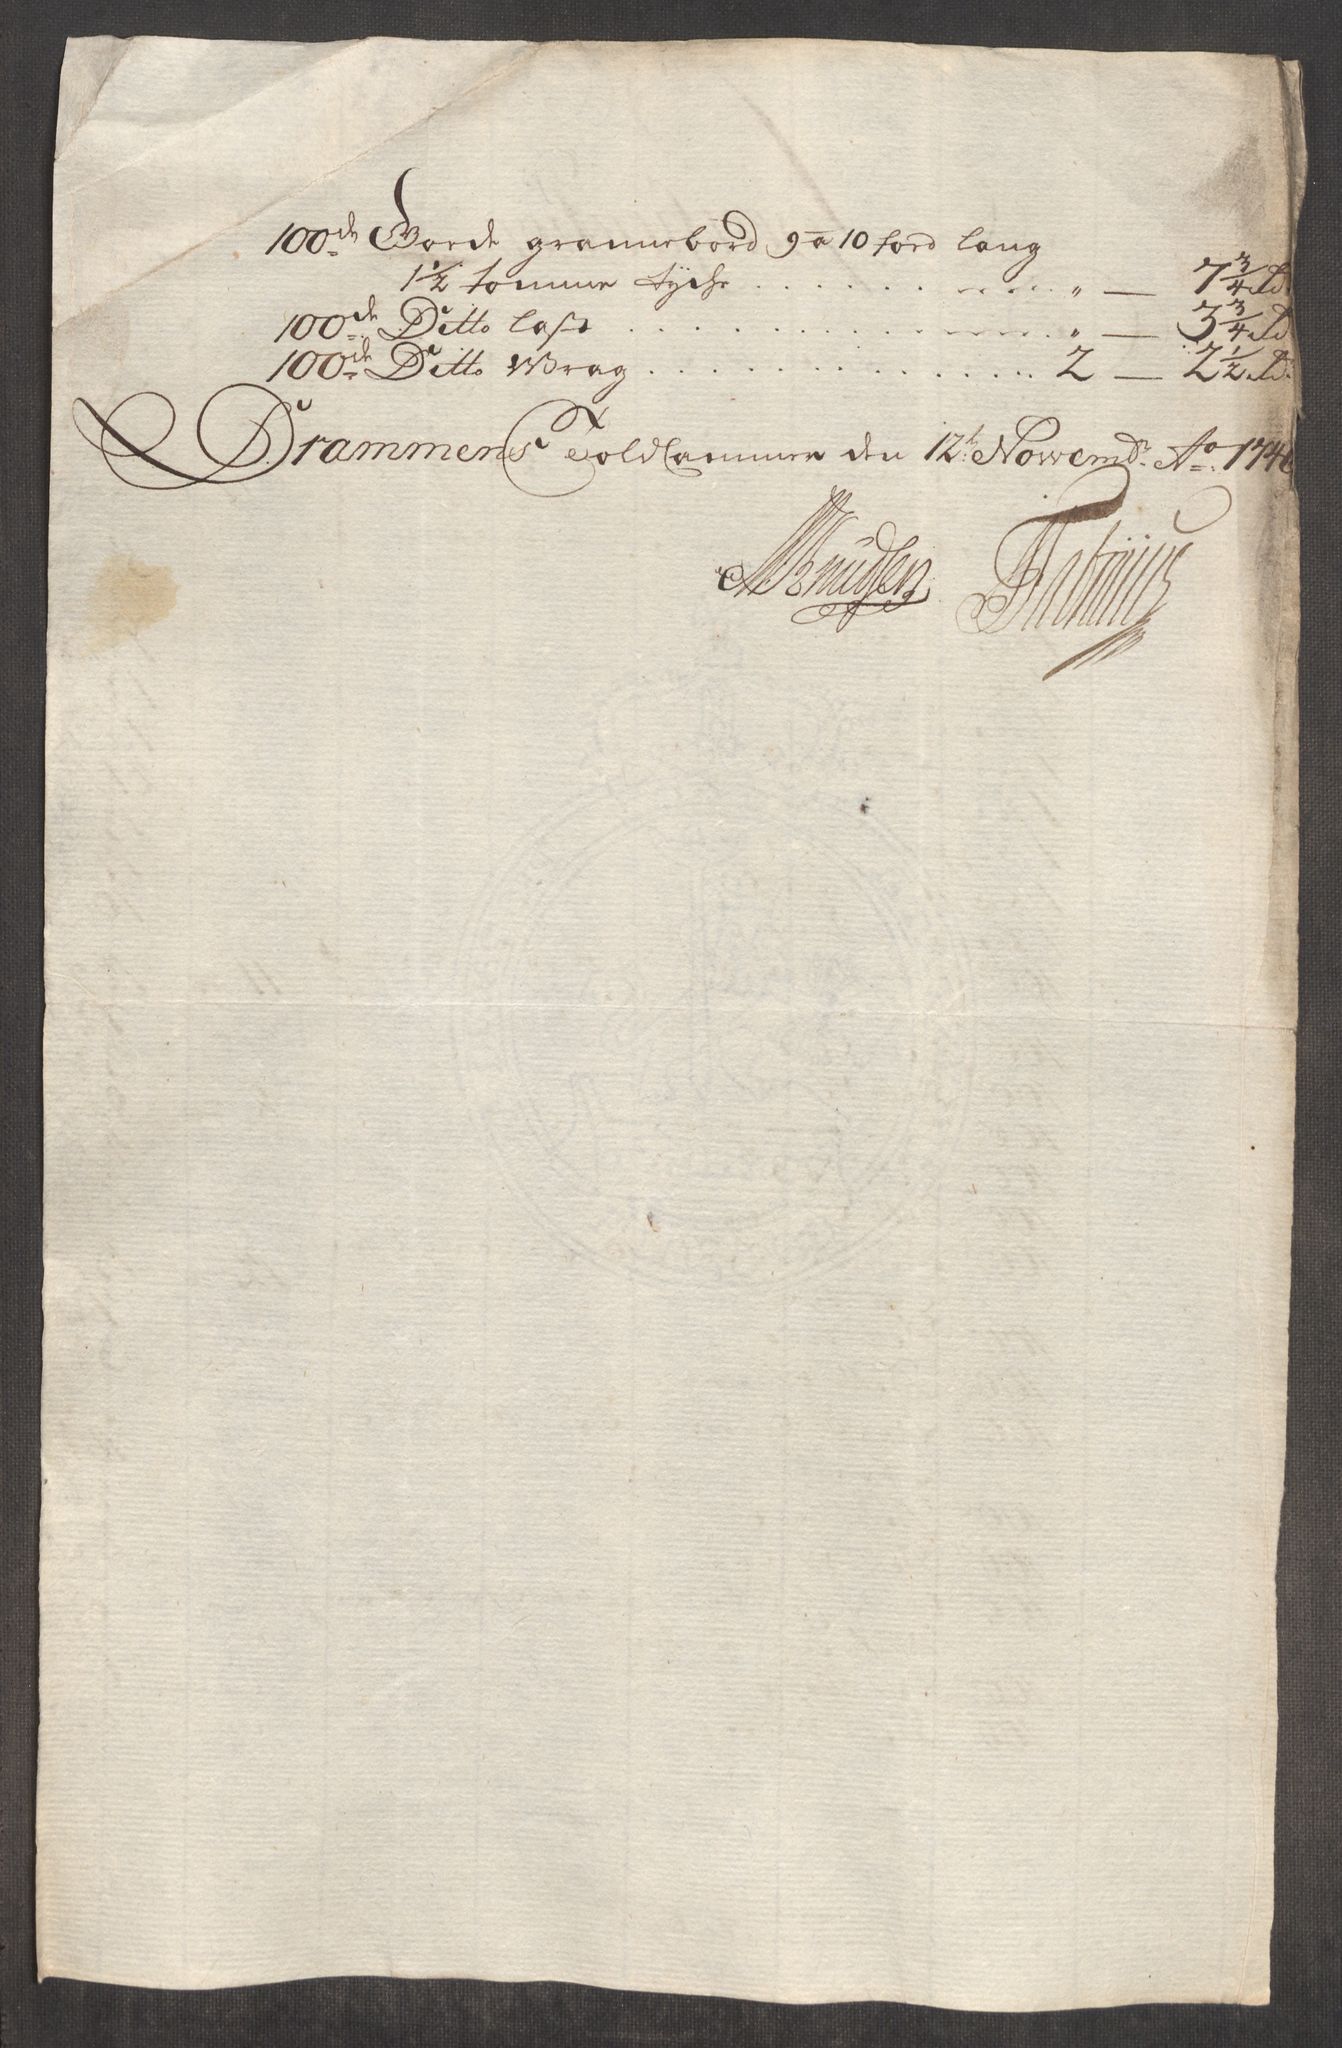 100de Goede grannebord 9 a 10 foed lang
1½ tomme tycke . . . . . . . . . . . . „ — 7¾ s.
100de Ditto last . . . . . . . . . . . . „ — 3¾ s.
100de Ditto Wrag . . . . . . . . . . . . 2 — 2½ s.
Drammens Toldkammer den 12t. Novembr. Ao. 174
Knudsen